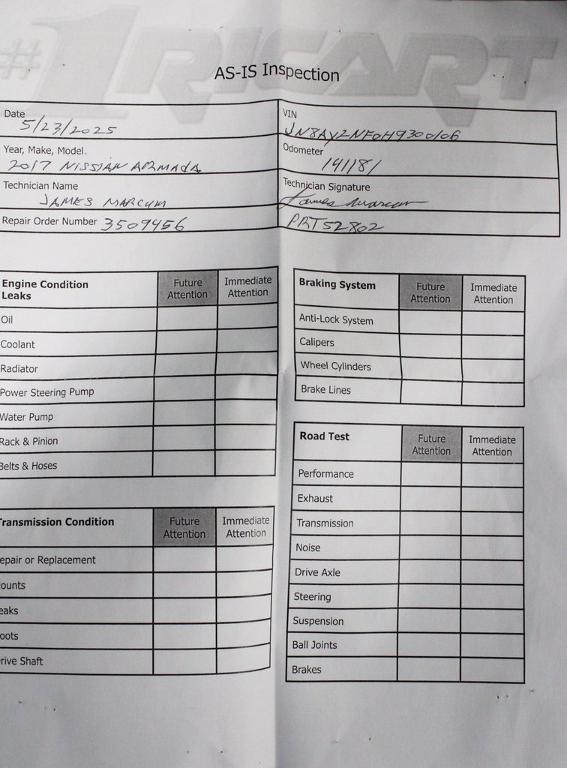 #1 RICART
AS-IS Inspection
Date 5/23/2025
VIN JN8AY2NF0H9300106
Year, Make, Model. 2017 NISSIAN ARMADA
Odometer 141181
Technician Name JAMES MARCUM
Technician Signature James Marcum
Repair Order Number 3509456
PRT52802
Engine Condition Leaks
Future Attention
Immediate Attention
Oil
Coolant
Radiator
Power Steering Pump
Water Pump
Rack & Pinion
Belts & Hoses
Braking System
Future Attention
Immediate Attention
Anti-Lock System
Calipers
Wheel Cylinders
Brake Lines
Transmission Condition
Future Attention
Immediate Attention
epair or Replacement
ounts
eaks
oots
rive Shaft
Road Test
Future Attention
Immediate Attention
Performance
Exhaust
Transmission
Noise
Drive Axle
Steering
Suspension
Ball Joints
Brakes